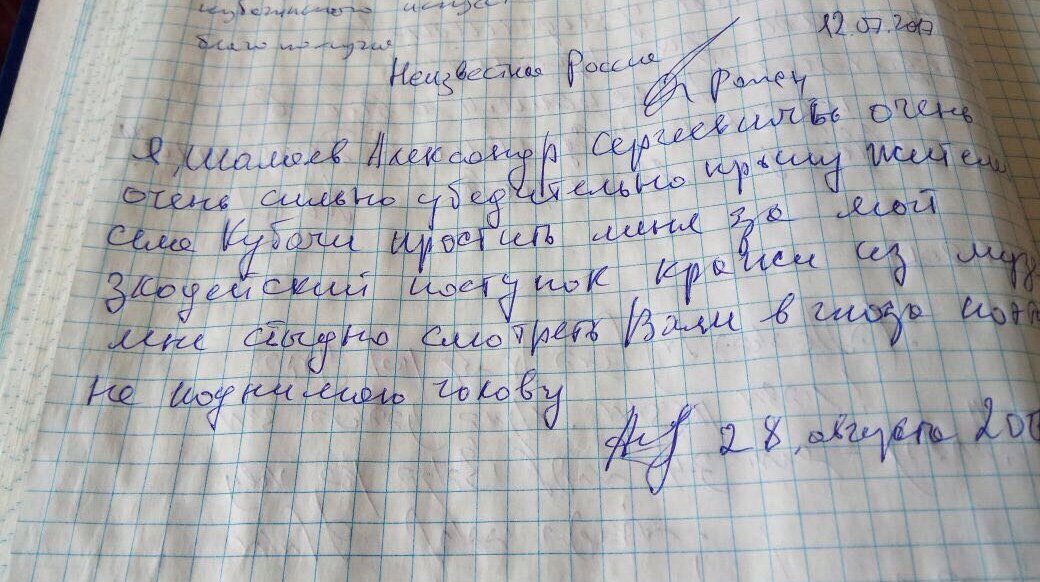 благополучия
12.07.2017
Неизвестная Россия
Ромец
Я, Шамаев Александр Сергеевичь очень
очень сильно убедительно прошу жители
села Кубачи простить меня за мой
злодейский поступок кражи из муз
мне стыдно смотреть Вам в глаза поэт
не поднимаю голову
28, августа 201